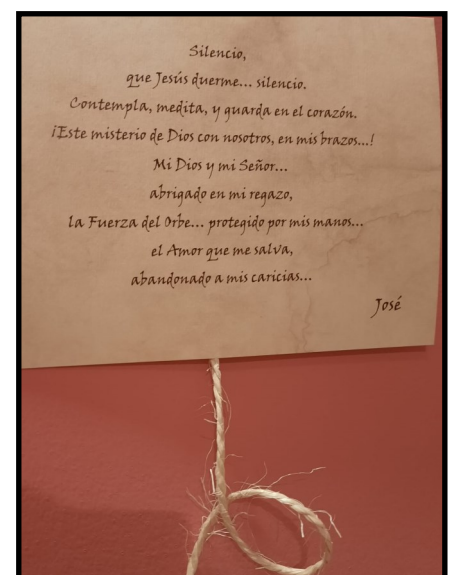 Silencio,
que Jesús duerme... silencio.
Contempla, medita, y guarda en el corazón.
¡Este misterio de Dios con nosotros, en mis brazos...!
Mi Dios y mi Señor...
abrigado en mi regazo,
la Fuerza del Orbe... protegido por mis manos...
el Amor que me salva,
abandonado a mis caricias...
José